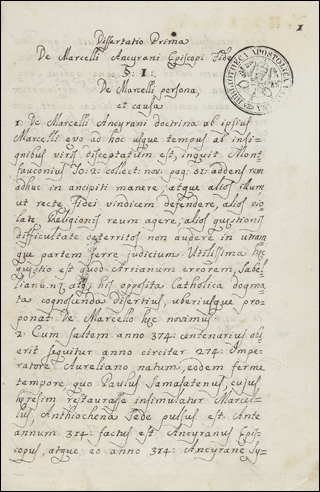 1
Dissertatio Prima
De Marcelli Ancyrani Episcopi Fide
§: I:
De Marcelli persona,
et causa
1: De Marcelli Ancyrani doctrina ab ipsius
Marcelli evo ad hoc usque tempus ab insi-
gnibus viris disceptatum est, inquit Mont
fauconius To: 2: collect: nov: pag: 51: addens rem
adhuc in ancipiti manere, atque alios illum
ut recte Fidei vindicem defendere, alios vio
late Religionis reum agere; alios quæstionis
difficultate deterritos non audere in utram
que partem ferre judicium. Utilissima hæc
quæstio est quod Arrianum errorem, Sabel
lianum, atq; his opposita Catholica dogma
ta cognoscenda disertius, uberiusque pro
ponat. De Marcello hæc novimus.
2: Cum saltem anno 374: centenarius obi
erit sequitur anno circiter 274: Impe-
ratore Aureliano natum, eodem ferme
tempore quo Paulus Samosatenus, cujus
heresim restaurasse insimulatur Marcel-
lus, Anthiochena Sede pulsus est. Ante
annum 314: factus est Ancyranus Epis-
copus, atque eo anno 314: Ancyrane Sy-
BIBLIOTHECA APOSTOLICA